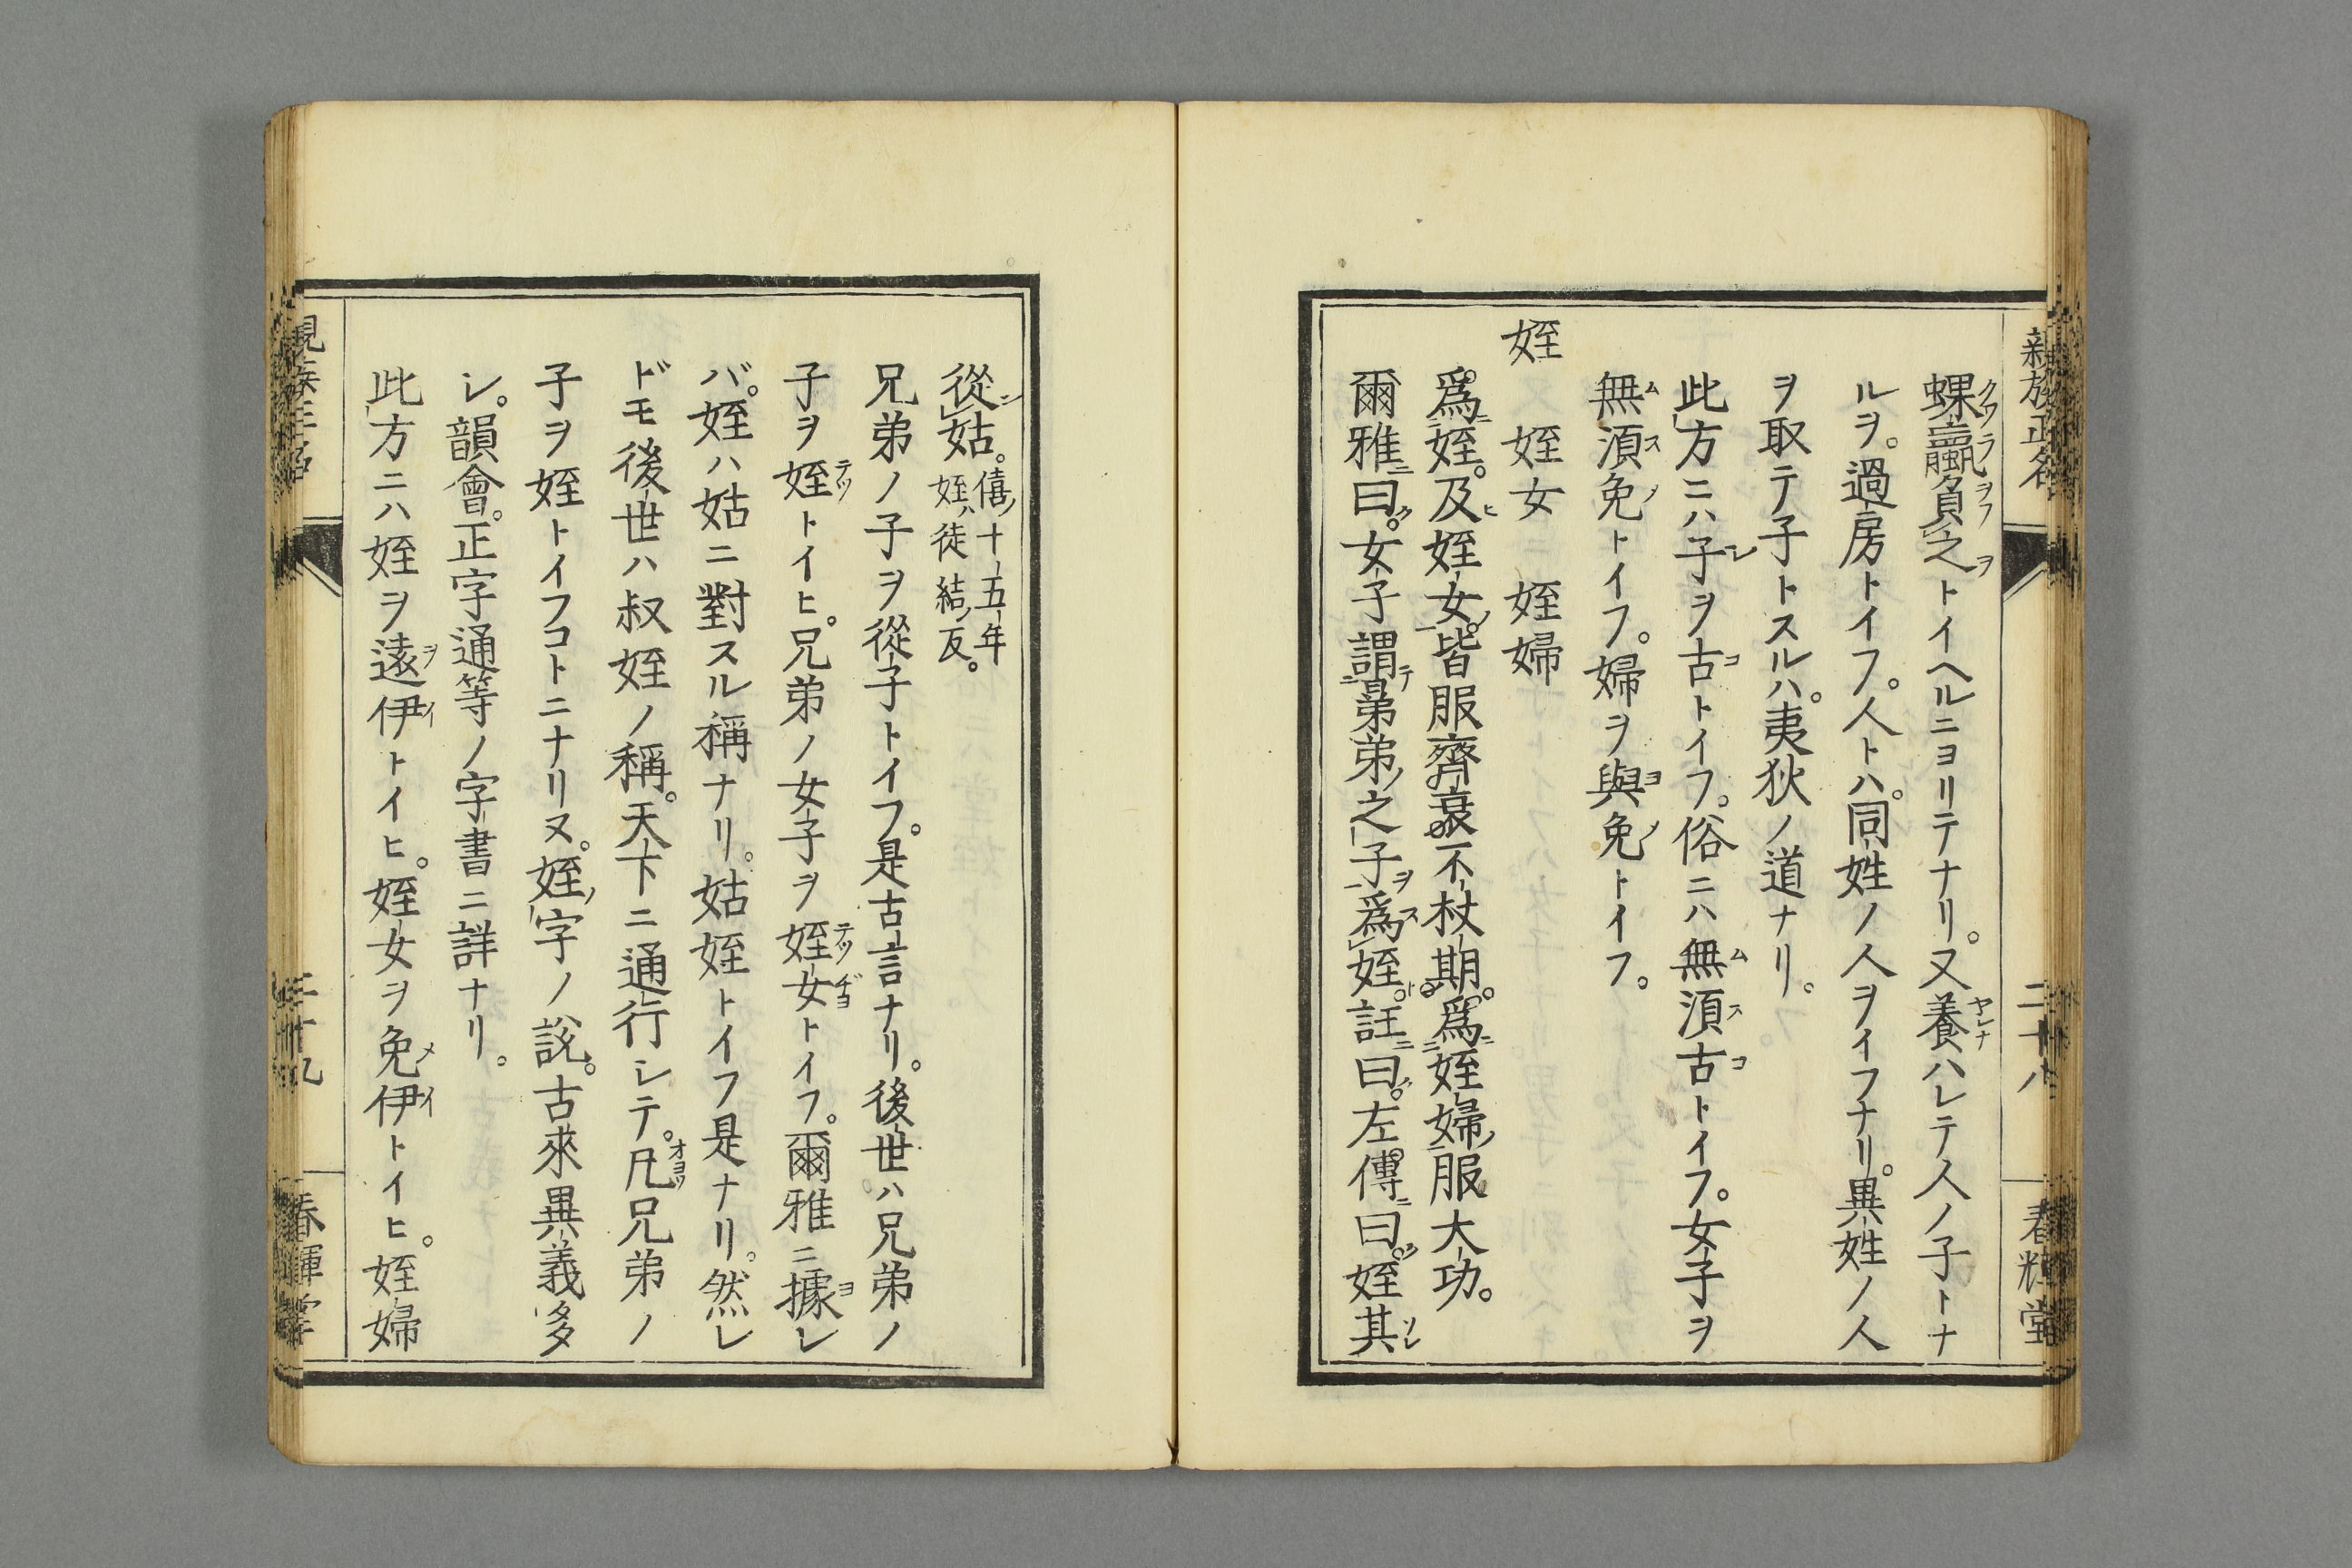 親族正名 二十八 春輝堂
蜾蠃負之トイヘルニヨリテナリ。又養ハレテ人ノ子トナ
ルヲ。過房トイフ。人トハ。同姓ノ人ヲイフナリ。異姓ノ人
ヲ取テ子トスルハ。夷狄ノ道ナリ。
此方ニハ子ヲ古トイフ。俗ニハ無須古トイフ。女子ヲ
無須免トイフ。婦ヲ與免トイフ。
姪 姪女 姪婦
爲姪。及姪女。皆服齊衰不杖期。爲姪婦服大功。
爾雅曰。女子謂晜弟之子爲姪。註曰。左傳曰。姪其
從姑。僖十五年
姪ハ徒結ノ反。
兄弟ノ子ヲ從子トイフ。是古言ナリ。後世ハ兄弟ノ
子ヲ姪トイヒ。兄弟ノ女子ヲ姪女トイフ。爾雅ニ據レ
バ。姪ハ姑ニ對スル稱ナリ。姑姪トイフ是ナリ。然レ
ドモ後世ハ叔姪ノ稱。天下ニ通行シテ。凡兄弟ノ
子ヲ姪トイフコトニナリヌ。姪字ノ說。古來異義多
シ。韻會。正字通等ノ字書ニ詳ナリ。
此方ニハ姪ヲ遠伊トイヒ。姪女ヲ免伊トイヒ。姪婦
親族正名 二十九 春輝堂